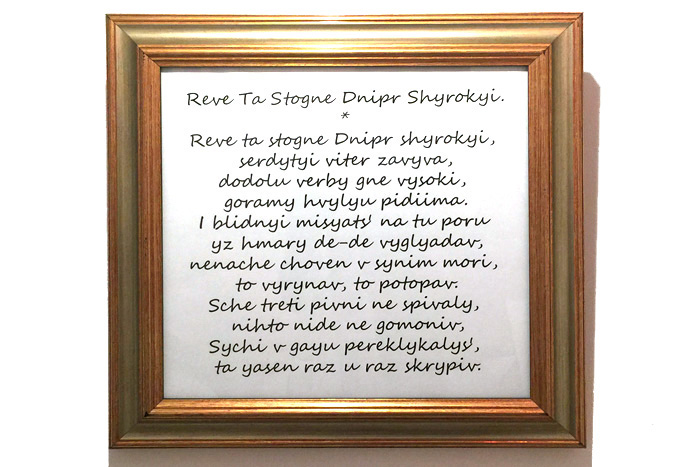 Reve Ta Stogne Dnipr Shyrokyi.
*
Reve ta stogne Dnipr shyrokyi,
serdytyi viter zavyva,
dodolu verby gne vysoki,
goramy hvylyu pidiima.
I blidnyi misyats' na tu poru
yz hmary de-de vyglyadav,
nenache choven v synim mori,
to vyrynav, to potopav.
Sche treti pivni ne spivaly,
nihto nide ne gomoniv,
Sychi v gayu pereklykalys',
ta yasen raz u raz skrypiv.